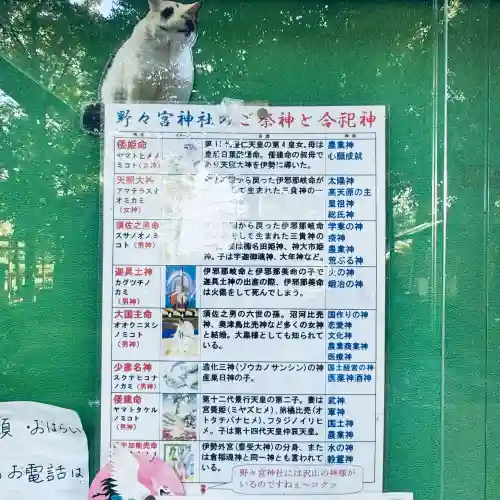 野々宮神社のご祭神と合祀神
倭姫命
ヤマトヒメノ
ミコト(女神)
天皇の第4皇女。母は
皇后日葉酢媛命。倭建命の叔母で
あり天照大神を伊勢に導いた。
農業神
心願成就
天照大神
アマテラスオ
オミカミ
(女神)
から戻った伊邪那岐命が
して生まれた三貴神の一
太陽神
高天原の主
皇祖神
総氏神
須佐之男命
スサノオノミ
コト(男神)
から戻った伊邪那岐命
をして生まれた三貴神の
は櫛名田姫神、神大市姫
神。子は宇迦御魂神、大年神など。
学業の神
疫神
農業神
荒ぶる神
迦具土神
カグツチノ
カミ
(男神)
伊邪那岐命と伊邪那美命の子で
迦具土神の出産の際、伊邪那美命
は火傷をして死んでしまう。
火の神
鍛冶の神
大国主命
オオクニヌシ
ノミコト
(男神)
須佐之男の六世の孫。沼河比売
神、奥津島比売神など多くの女神
と結婚。大黒様としても知られて
いる。
国作りの神
恋愛神
文化神
農業商業神
医療神
少彦名神
スクナヒコナ
ノカミ(男神)
造化三神(ゾウカノサンシン)の神
産巣日神の子。
国土経営の神
医薬神酒神
倭建命
ヤマトタケル
ノミコト
(男神)
第十二代景行天皇の第二子。妻は
宮簀姫(ミヤズヒメ)、弟橘比売(オ
トタチバナヒメ)、フタジノイリヒ
メ。子は第十四代天皇仲哀天皇。
武神
軍神
国土神
農業神
伊勢外宮(豊受大神)の分身、また
は倉稲魂神と同一神とも言われて
いる。
水の神
穀霊神
野々宮神社には沢山の神様が
いるのですねぇ〜コケッ
・おはらい
お電話は